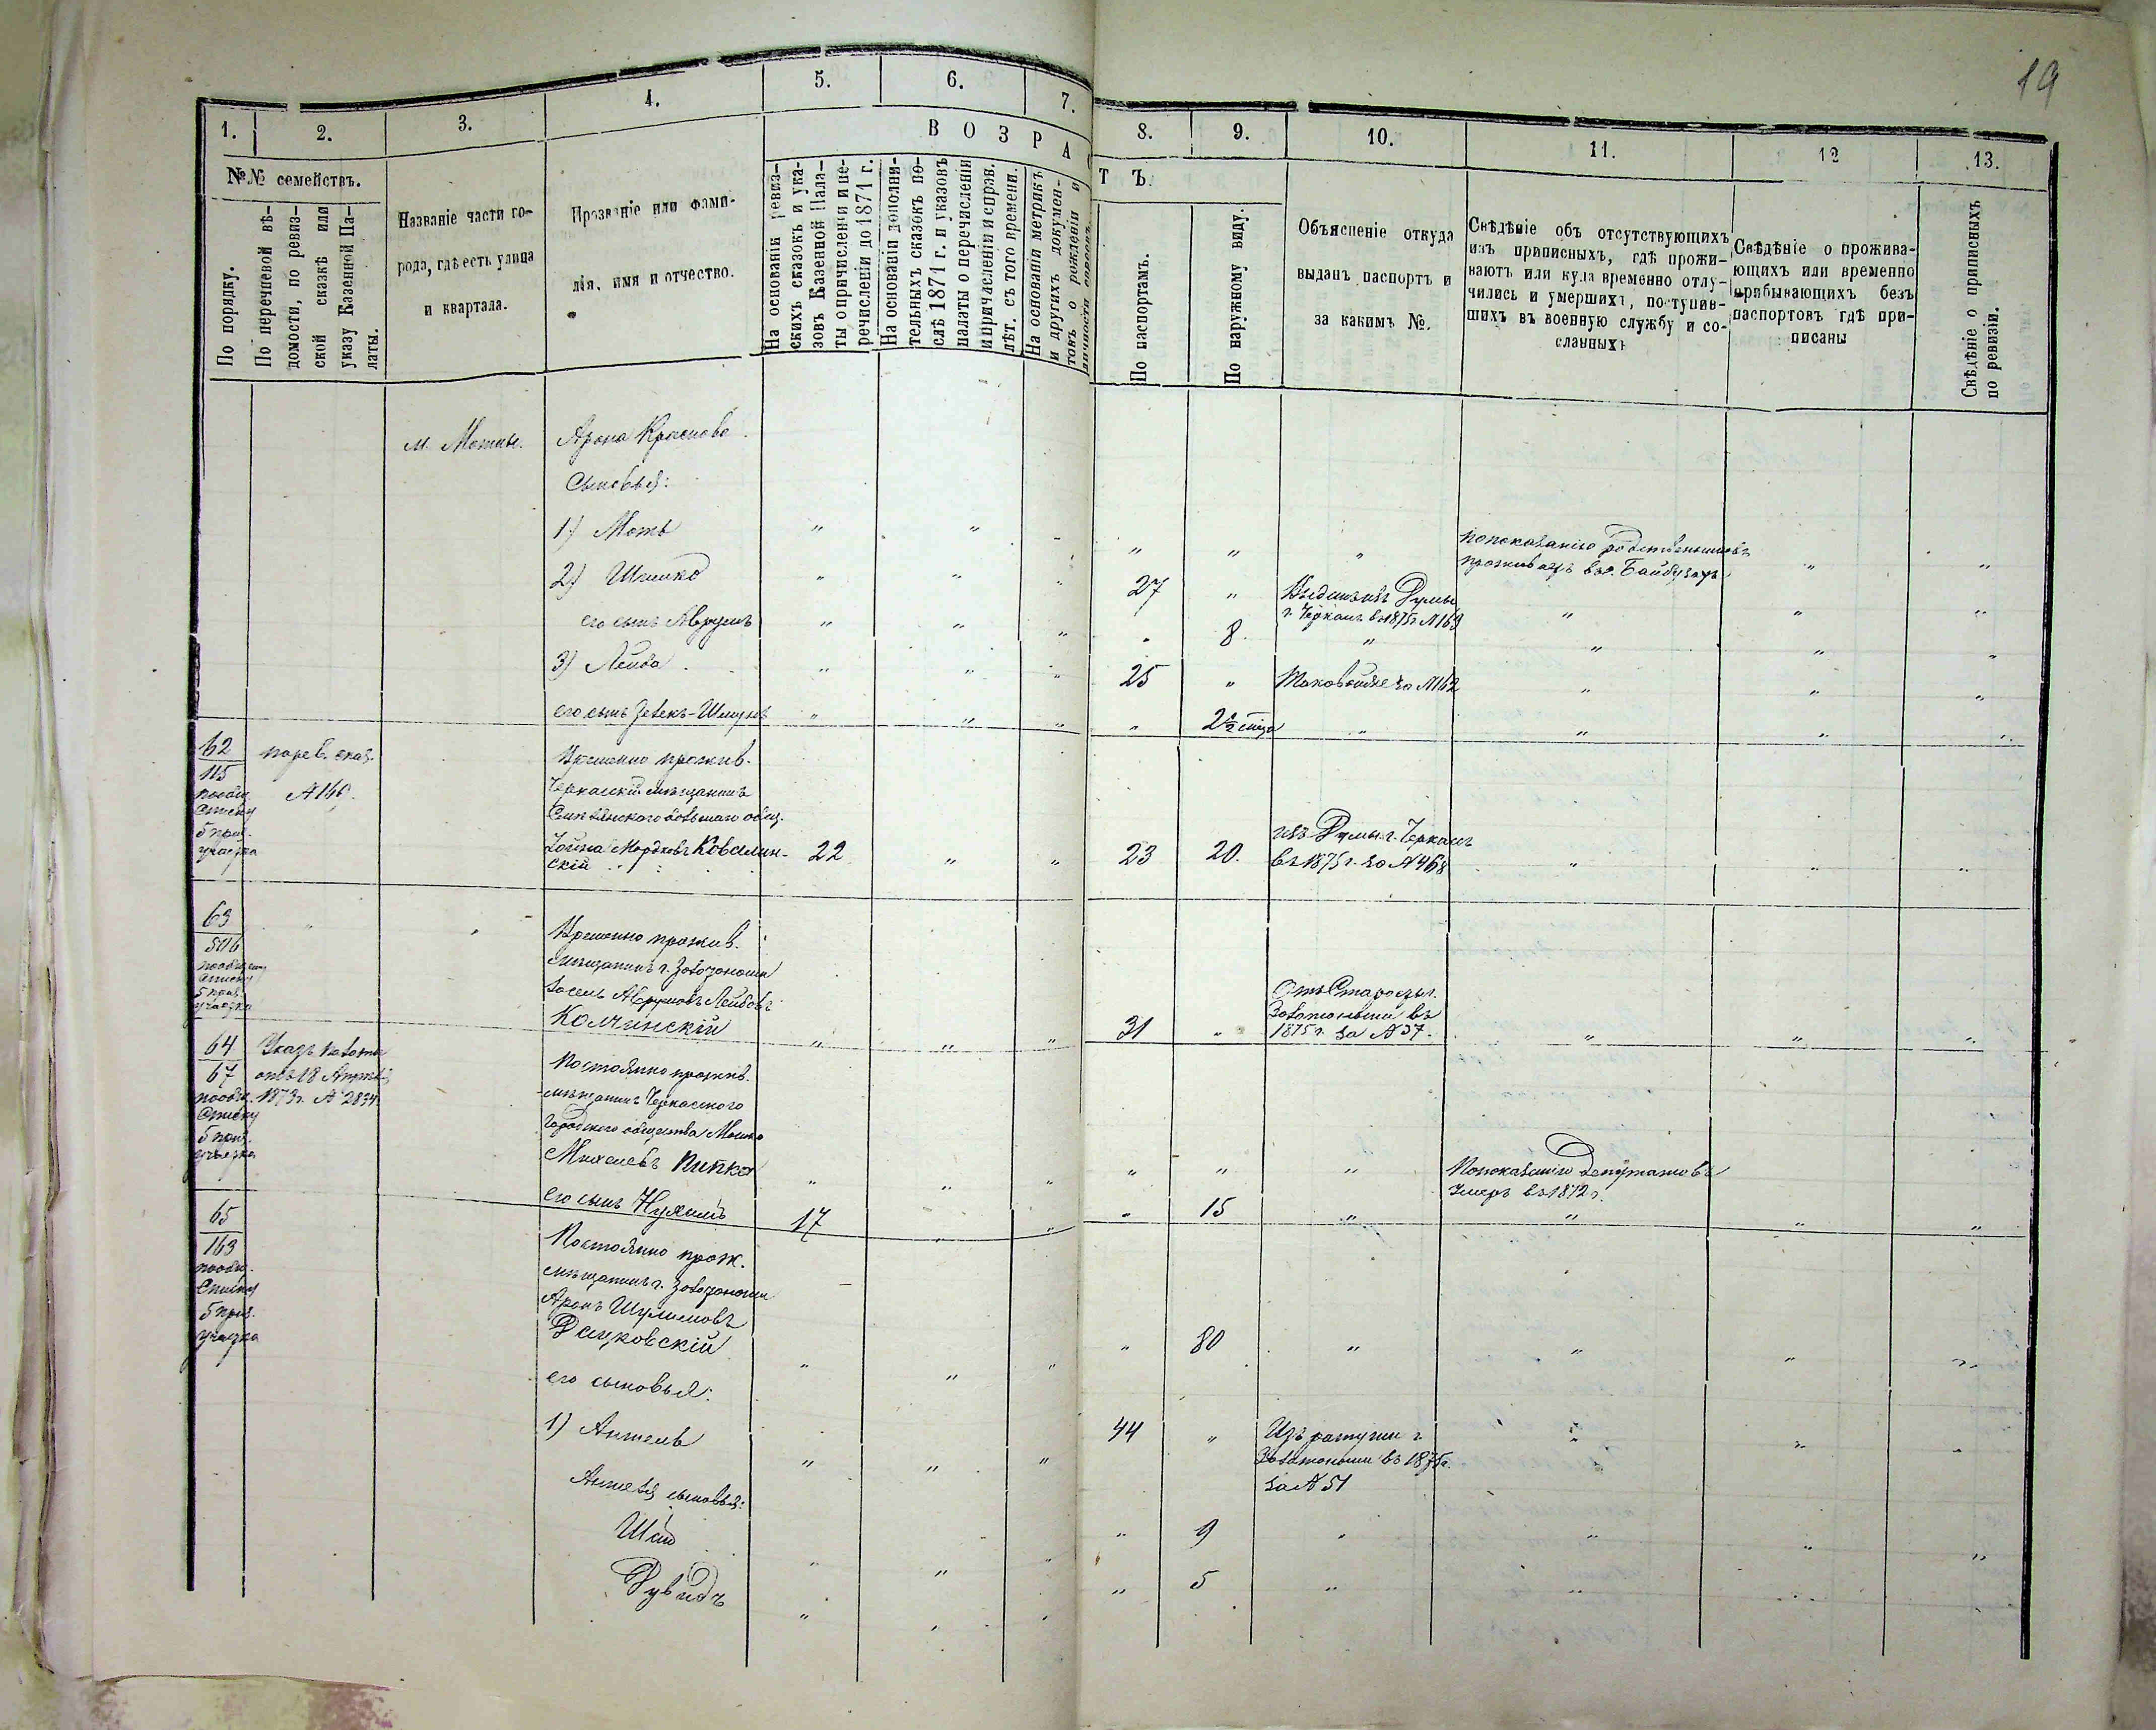 19
1.
2.
3.
4.
5.
6.
7.
8.
9.
10.
11.
12
13.
№№ семействъ.
По порядку.
По перечневой вѣ-
домости, по ревиз-
ской сказкѣ или
указу Казенной Па-
латы.
Названіе части го-
рода, гдѣ есть улица
и квартала.
Прозваніе или фами-
лія, имя и отчество.
ВОЗРА
ТЪ.
На основаніи ревиз-
скихъ сказокъ и ука-
зовъ Казенной Пала-
ты о причисленіи и пе-
речисленіи до 1871 г.
На основаніи дополни-
тельныхъ сказокъ по-
слѣ 1871 г. и указовъ
палаты о перечисленіи
и причисленіи и справ.
лѣт. съ того времени.
На основаніи метрикъ
и другихъ докумен-
товъ о рожденіи и
По паспортамъ.
По наружному виду.
Объясненіе откуда
выданъ паспортъ и
за какимъ №.
Свѣдѣніе объ отсутствующихъ
изъ приписныхъ, гдѣ прожи-
ваютъ или куда временно отлу-
чились и умершихъ, поступив-
шихъ въ военную службу и со-
сланныхъ
Свѣдѣніе о прожива-
ющихъ или временно
прибывающихъ безъ
паспортовъ гдѣ при-
писаны
Свѣдѣніе о приписныхъ
по ревизіи.
м. Мошны. Арона Краснова
Сыновья:
1) Моть " " " " " попоказанію родственниковъ
проживаетъ въ с. Байбузахъ " "
2) Шмилко " " " 27 " Думы
г. Черкасъ въ 1875 г №163 " " "
его сынъ Аврумъ " " " " 8 " " " "
3) Лейба " " " 25 " Таковой же за №162 " " "
его сынъ Зелекъ-Шмулъ " " " " 2½ " " " "
62
115
пообщ
списку
5 приз.
участка
порев. сказ.
№140.
Временно прожив.
Черкаскій мѣщанинъ
общ.
Мордковъ Ковалин-
скій 22 " " 23 20. изъ Думы г. Черкасъ
въ 1875 г. за №468 " " "
63
506
пообщему
списку
5 приз.
участка
" "
Временно прожив.
мѣщанинъ г. Золотоноши
Іосель Аврумовъ Лейбовъ
Колчинскій " " " 31 " Отъ Старосты г.
Золотоноши въ
1875 г. за №37. " " "
64
67
пообщ.
списку
5 приз.
участка
Указъ палаты
отъ 18 Апрѣля
1873 г. №2834
Постоянно прожив.
мѣщанинъ Черкаскаго
Городского общества Мошко
Михелевъ Пипко " " " " " " Попоказанію Депутатовъ
Умеръ въ 1872 г.
его сынъ Нухимъ 17 " " " 15 " " " "
65
163
пообщ.
списку
5 приз.
участка
Постоянно прож.
мѣщанинъ г. Золотоноши
Аронъ Шулимовъ
Рацковскій " " " " 80 " " " "
его сыновья:
1) Аншель " " " 44 " Изъ ратуши г.
Золотоноши въ 1875 г.
за №51 " " "
Аншеля сыновья:
" " " " 9 " " " "
Дувидъ " " " " 5 " " "